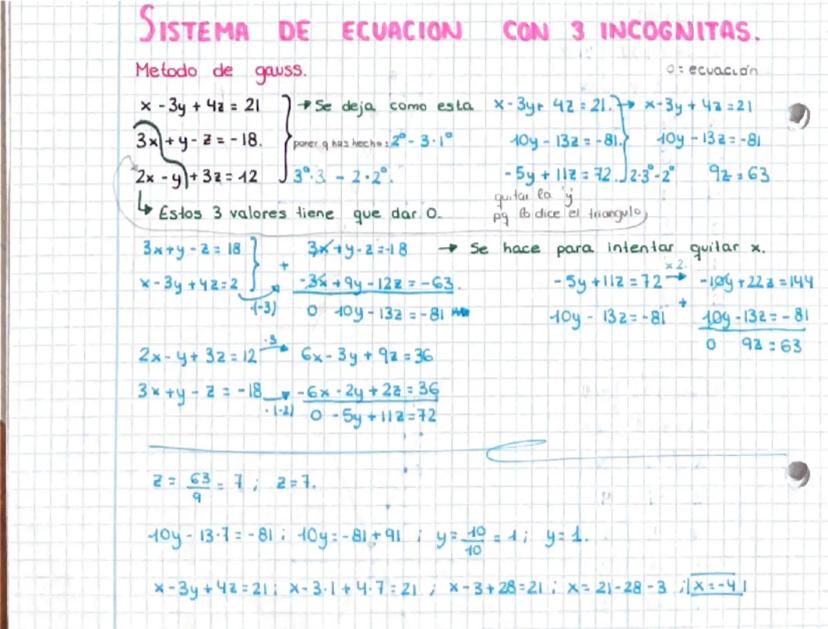 SISTEMA DE ECUACION CON 3 INCOGNITAS.
Metodo de gauss.
o: ecuación
x - 3y + 4z = 21
3x + y - z = -18.
2x - y + 3z = 12
→ Se deja como esta
poner q has hecho: 2º - 3·1º
3º·3 - 2·2º.
x - 3y + 4z = 21.
10y - 13z = -81.
-5y + 11z = 72. 2·3º-2º
→ x - 3y + 4z = 21
10y - 13z = -81
9z = 63
↳ Estos 3 valores tiene que dar 0.
quitar la 'y'
pq lo dice el triangulo
3x + y - z = 18
x - 3y + 4z = 2
(-3)
3x + y - z = -18
+
-3x + 9y - 12z = -63.
0 10y - 13z = -81
→ Se hace para intentar quitar x.
-5y + 11z = 72 x2 → -10y + 22z = 144
+
10y - 13z = -81 10y - 13z = -81
0 9z = 63
2x - y + 3z = 12 ·3 → 6x - 3y + 9z = 36
3x + y - z = -18 ·(-2) → -6x - 2y + 2z = 36
0 -5y + 11z = 72
z = 63/9 = 7; z = 7.
10y - 13·7 = -81; 10y = -81 + 91; y = 10/10 = 1; y = 1.
x - 3y + 4z = 21; x - 3·1 + 4·7 = 21; x - 3 + 28 = 21; x = 21 - 28 - 3; x = -4